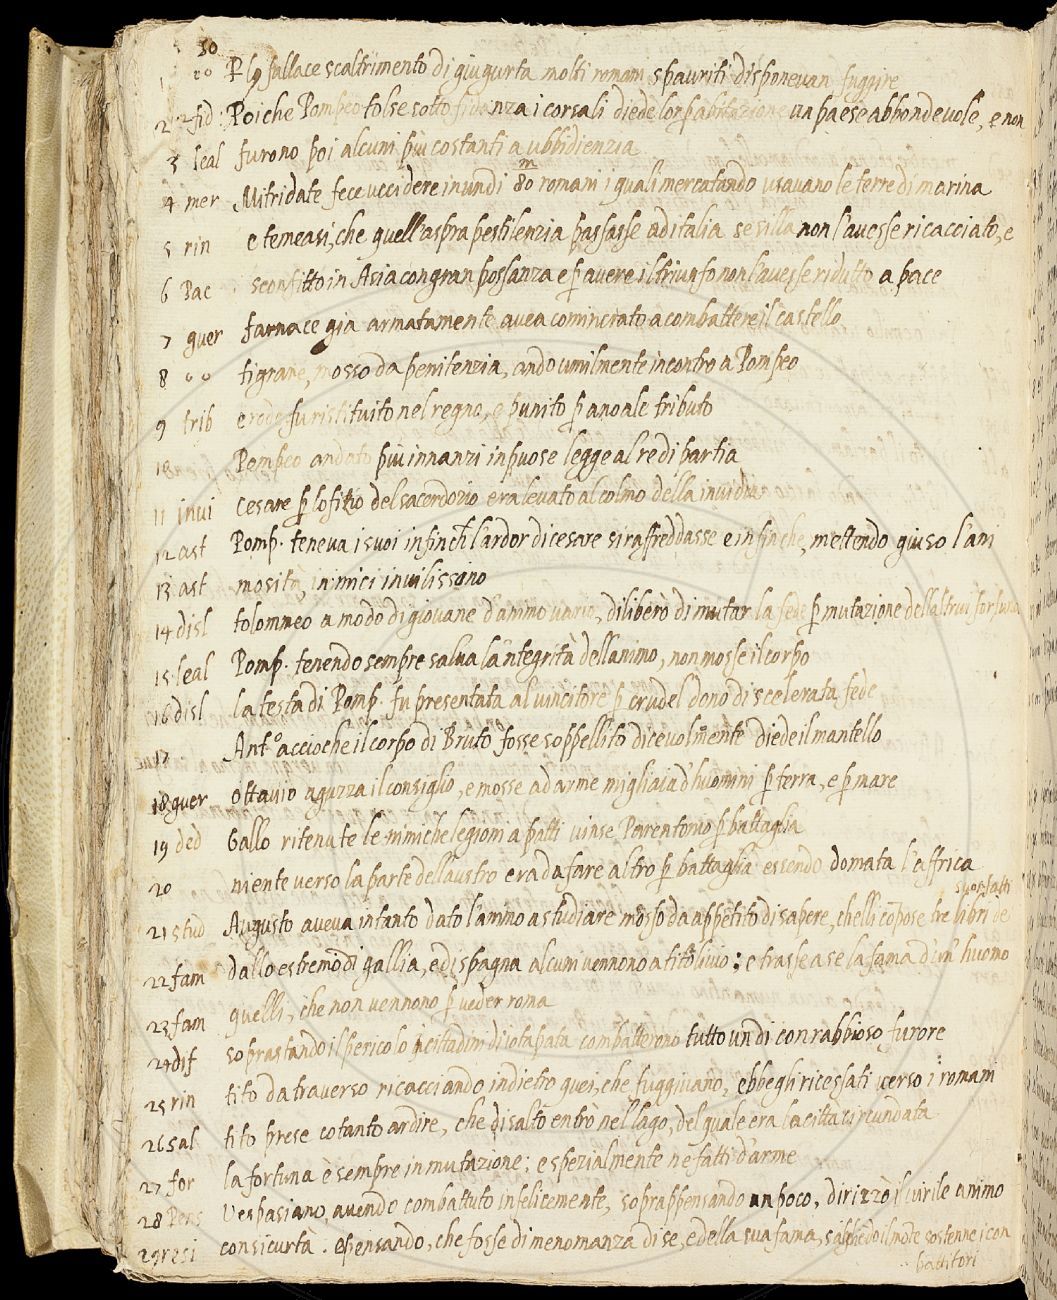 50
1 °° P lo fallace scaltrimento di giugurta molti romani spauriti disponevan fuggire
2 fid: Poiche Pompeo tolse sotto fidanza i corsali diede lor p abitazione un paese abbondevole, e non
3 leal furono poi alcuni più costanti a ubbidienzia
4 mer Mitridate fece uccidere in un dì 80 m romani i quali mercatando usavano le terre di marina
5 rin e temeasi, che quell'aspra pestilenzia passasse ad italia se silla non l'avesse ricacciato, e
6 Pac sconfitto in Asia con gran possanza e p avere il triunfo non l'avesse ridutto a pace
7 guer farnace gia armatamente avea cominciato a combattere il castello
8 °° tigrane, mosso da penitenzia, ando umilmente incontro a Pompeo
9 trib e rede fu ristituito nel regno, e punito p anoale tributo
10 Pompeo andato più innanzi inpuose legge al re di partia
11 invi Cesare p lofitio del sacerdozio era levato al colmo della invidia
12 ast Pomp. teneva i suoi infinch l'ardor di cesare si raffreddasse e infinche, mettendo giuso l'ani
13 ast mosità, inimici invilissino
14 disl tolommeo a modo di giovane d'animo vario, diliberò di mutar la fede p mutazione dell'altrui fortuna
15 leal Pomp. tenendo sempre salva la 'ntegrità dell animo, non mosse il corpo
16 disl la testa di Pomp. fu presentata al vincitore p crudel dono di scelerata fede
17 Ant.° accioche il corpo di Bruto fosse soppellito dicevolmente diede il mantello
18 guer ottavio aguzza il consiglio, e mosse ad arme migliaia d'huomini p terra, e p mare
19 ded Gallo ritenute le nimiche legioni a patti vinse Parentonio p battaglia
20 niente verso la parte dell austro era da fare altro p battaglia essendo domata l'affrica
suoi fatti
21 stud Augusto aveva intanto dato l'animo a studiare mosso da appetito di sapere, chelli cõpose tre libri de
22 fam dallo estremo di gallia, e di spagna alcuni vennono a tito livio: e trasse a se la fama d'un huomo
23 fam quelli, che non vennono p veder roma
24 dif soprastando il pericolo i cittadini di iotapata combatterono tutto un di con rabbioso furore
25 rin tito da traverso ricacciando indietro quei, che fuggivano, ebbegli ricessati verso i romani
26 sal tito prese cotanto ardire, che di salto entrò nel lago, del quale era la citta circundata
27 for la fortuna è sempre in mutazione; e spezialmente ne fatti d'arme
28 Pens vespasiano, avendo combattuto infelicemente, soprappensando un poco, dirizzò il virile animo
29 resi consicurta. e pensando, che fosse di menomanza di se, e della sua fama, sostenne i con
battitori